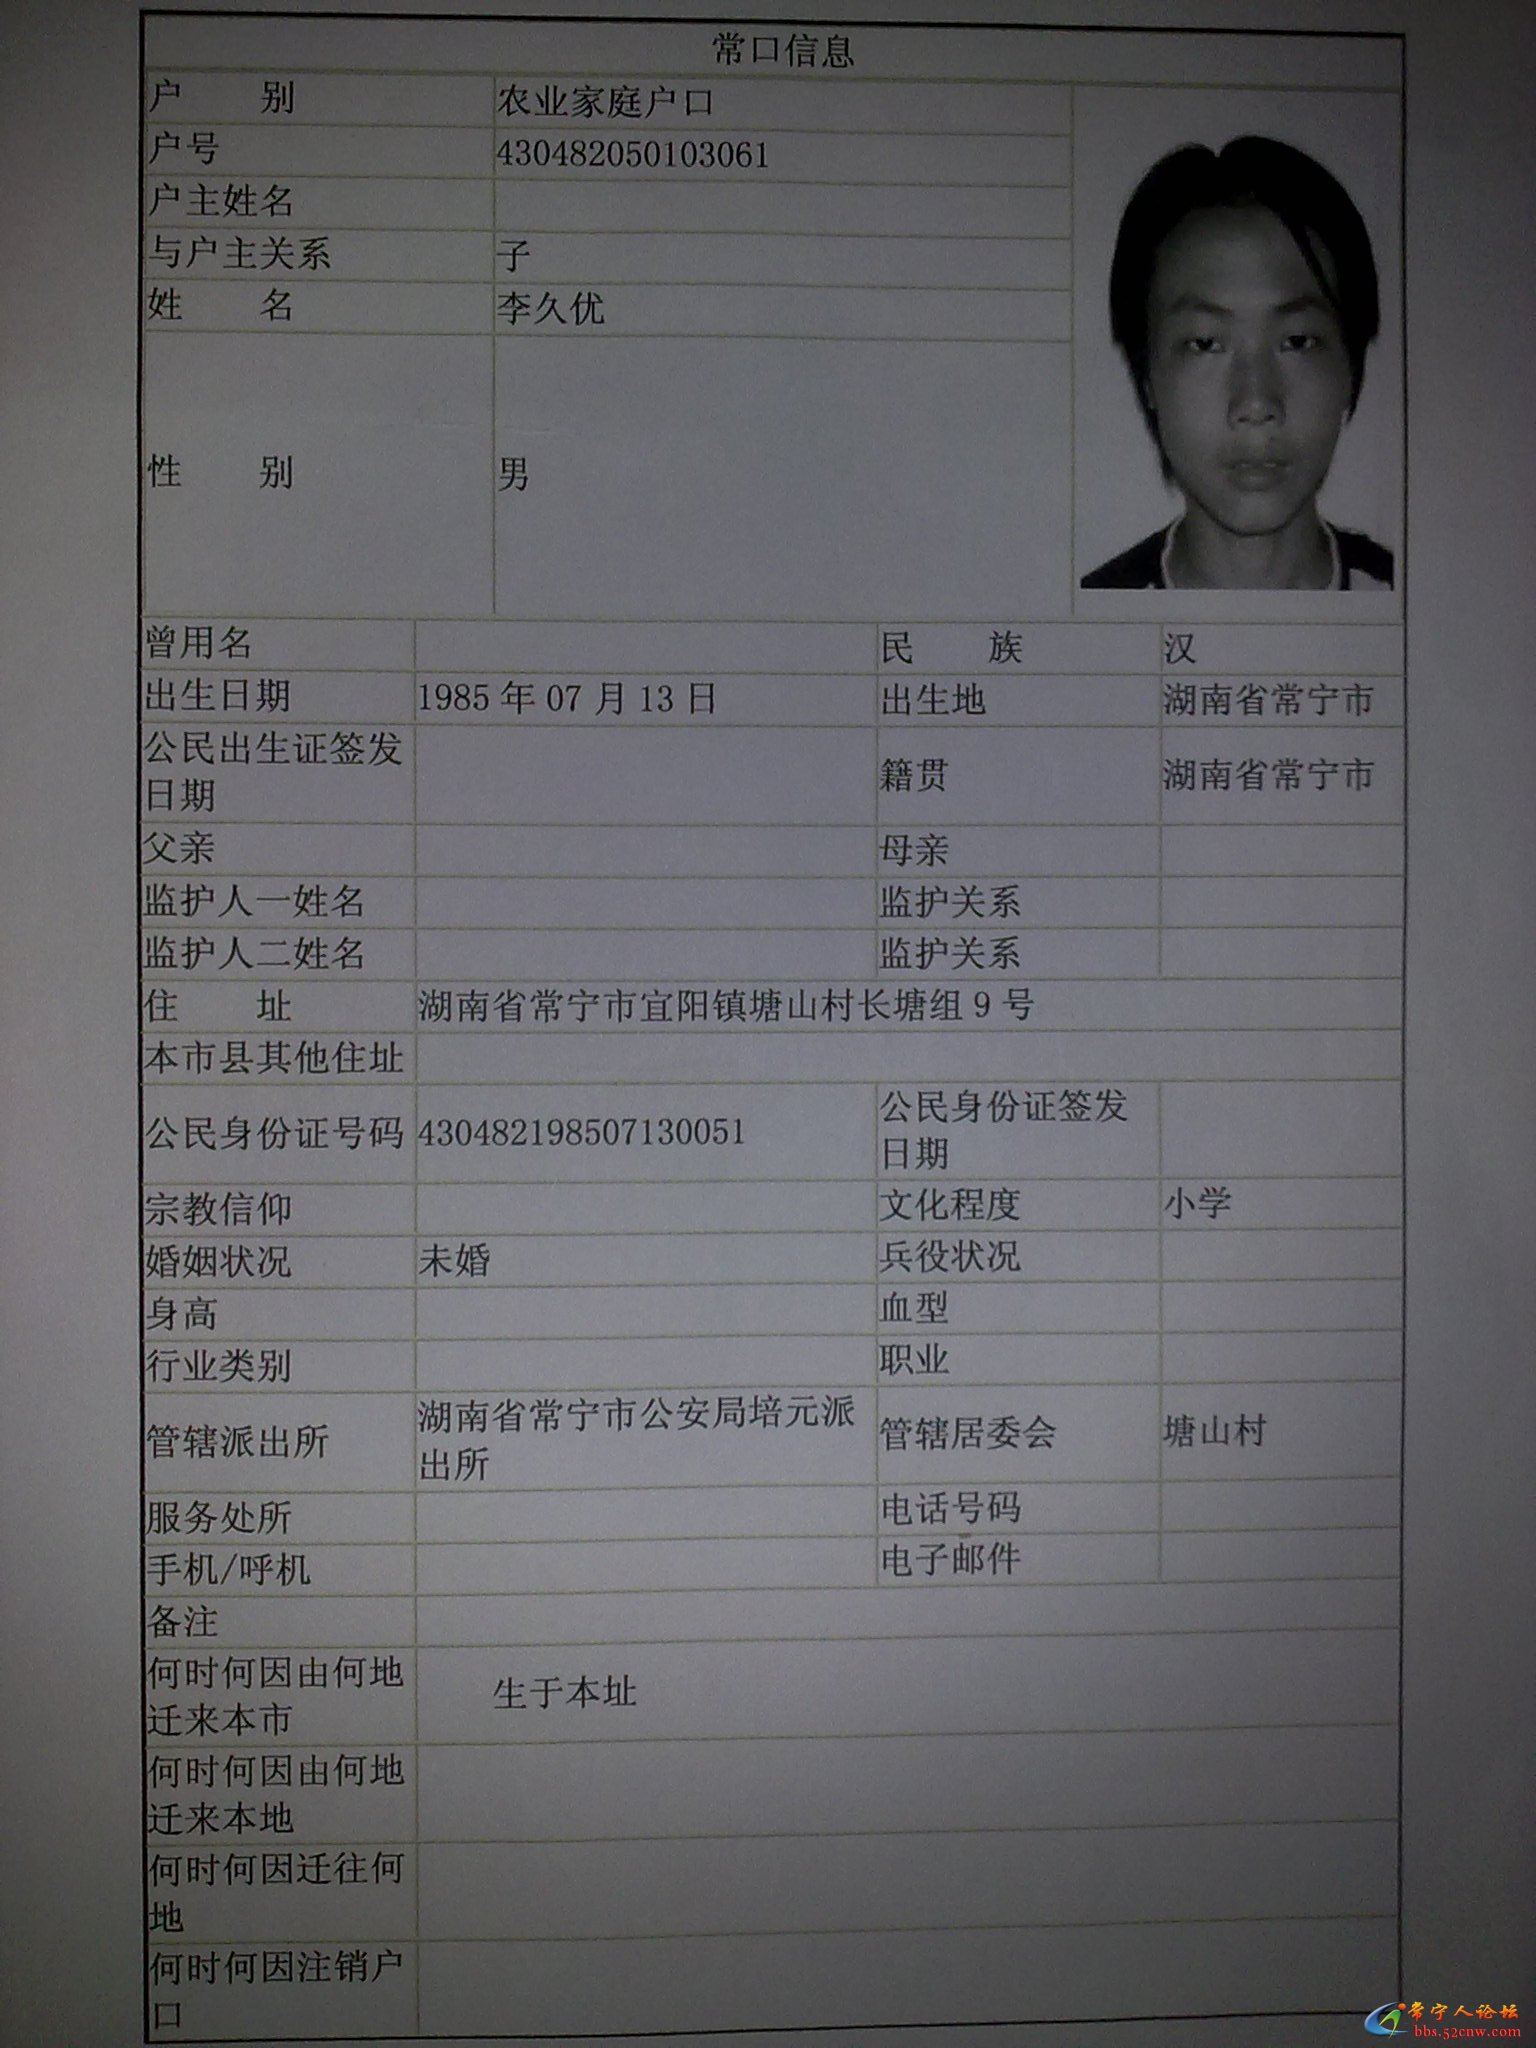 常口信息
户 别 农业家庭户口
户号 430482050103061
户主姓名
与户主关系 子
姓 名 李久优
性 别 男
曾用名 民 族 汉
出生日期 1985 年 07 月 13 日 出生地 湖南省常宁市
公民出生证签发
日期 籍贯 湖南省常宁市
父亲 母亲
监护人一姓名 监护关系
监护人二姓名 监护关系
住 址 湖南省常宁市宜阳镇塘山村长塘组 9 号
本市县其他住址
公民身份证号码 430482198507130051 公民身份证签发
日期
宗教信仰 文化程度 小学
婚姻状况 未婚 兵役状况
身高 血型
行业类别 职业
管辖派出所 湖南省常宁市公安局培元派
出所 管辖居委会 塘山村
服务处所 电话号码
手机/呼机 电子邮件
备注
何时何因由何地
迁来本市 生于本址
何时何因由何地
迁来本地
何时何因迁往何
地
何时何因注销户
口
常宁人论坛
bbs.52cnw.com